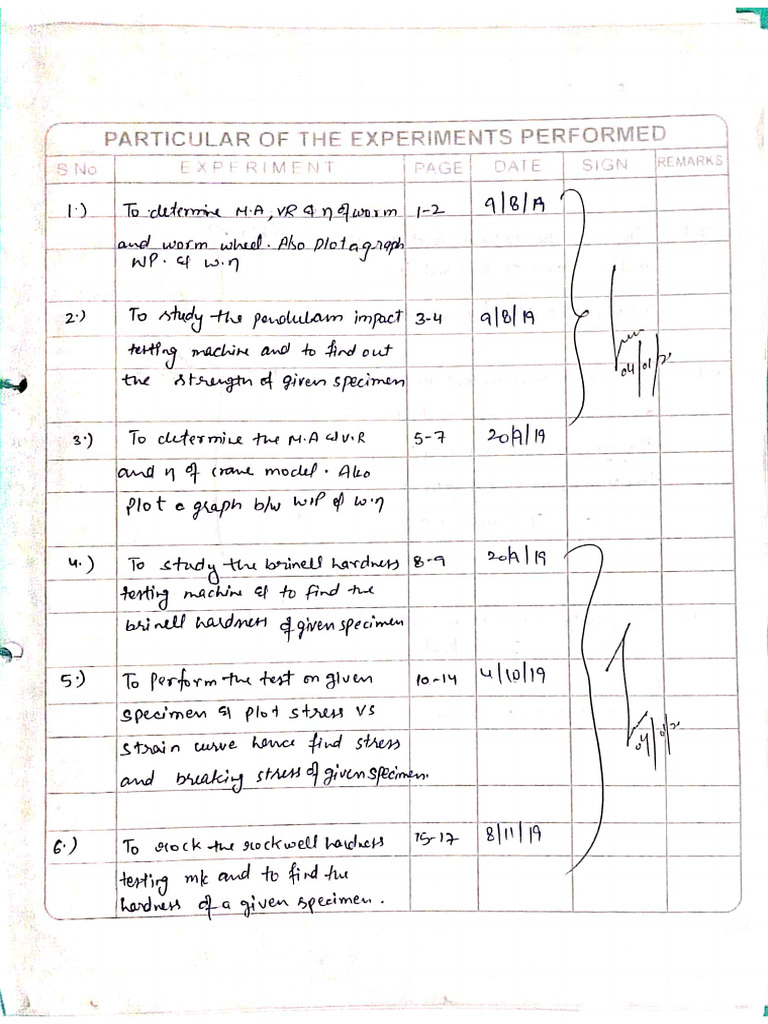 PARTICULAR OF THE EXPERIMENTS PERFORMED
S No EXPERIMENT PAGE DATE SIGN REMARKS
1.) To determine M.A, VR & η of worm 1-2 9/8/19
and worm wheel. Also Plot a graph
WP. & W.η
2.) To study the pendulam impact 3-4 9/8/19
testing machine and to find out
the strength of given specimen
04/01/2
3.) To determine the M.A & V.R 5-7 20/9/19
and η of crane model. Also
Plot a graph b/w W.P & W.η
4.) To study the brinell hardness 8-9 20/9/19
testing machine & to find the
brinell hardness of given specimen
5.) To perform the test on given 10-14 4/10/19
specimen & plot stress vs
strain curve hence find stress
and breaking stress of given specimen.
6.) To rock the rockwell hardness 15-17 8/11/19
testing m/c and to find the
hardness of a given specimen.